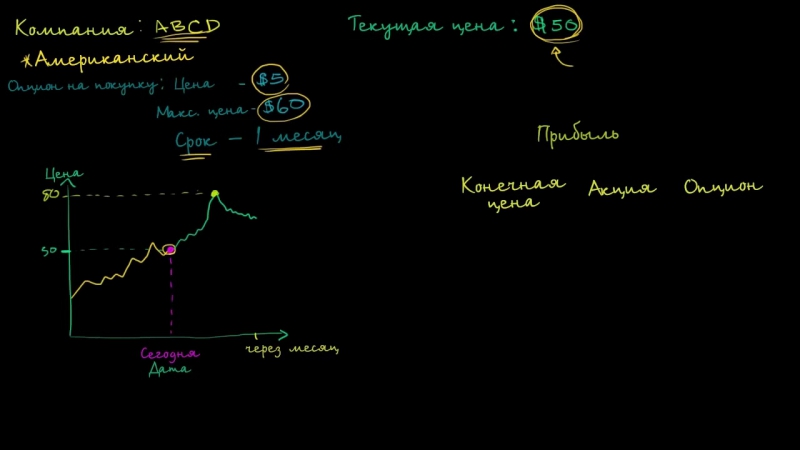 Компания: ABCD
Текущая цена: $50
*Американский
Опцион на покупку: Цена - $5
Макс. цена - $60
Срок - 1 месяц
Прибыль
Конечная цена
Акция
Опцион
Цена
80
50
Сегодня
через месяц
Дата